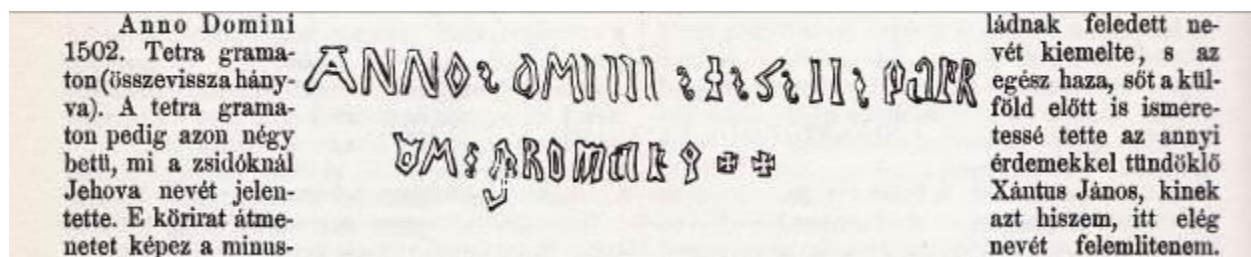 Anno Domini
1502. Tetra grama-
ton (összevissza hány-
va). A tetra grama-
ton pedig azon négy
betü, mi a zsidóknál
Jehova nevét jelen-
tette. E körirat átme-
netet képez a minus-
ANNO
ládnak feledett ne-
vét kiemelte, s az
egész haza, sőt a kül-
föld előtt is ismere-
tessé tette az annyi
érdemekkel tündöklő
Xántus János, kinek
azt hiszem, itt elég
nevét felemlitenem.